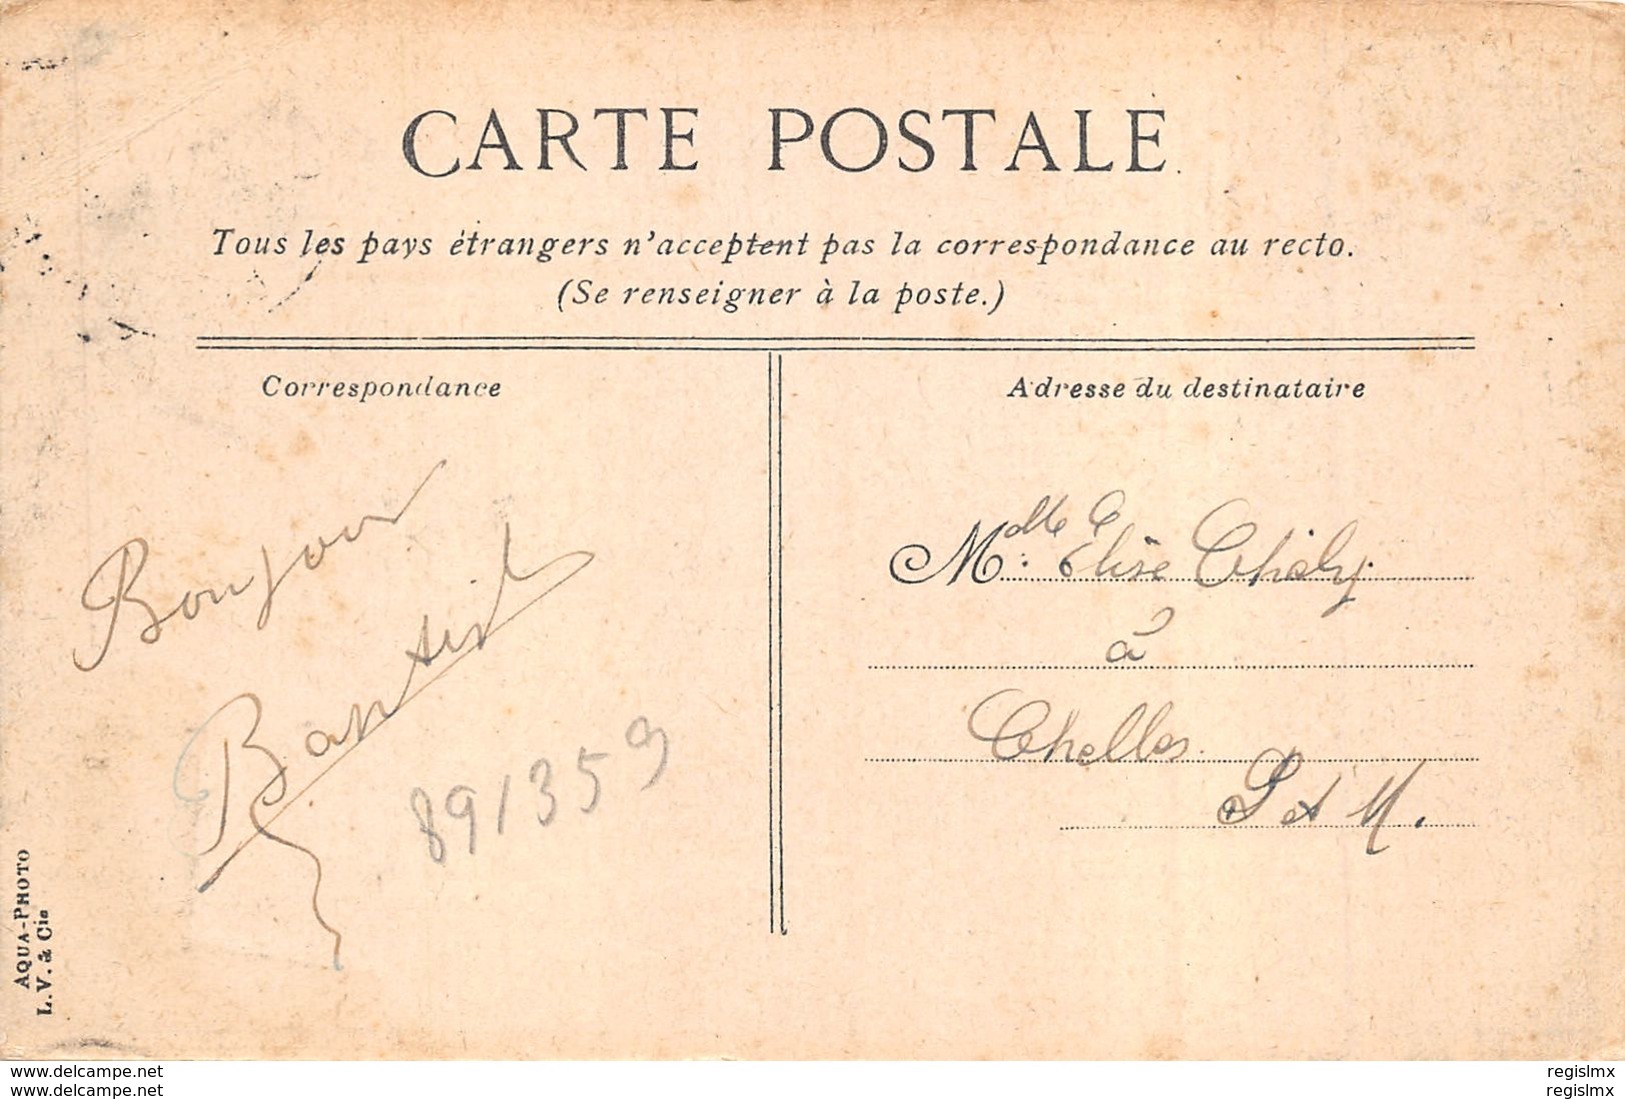 CARTE POSTALE
Tous les pays étrangers n'acceptent pas la correspondance au recto.
(Se renseigner à la poste.)
Correspondance
Bonjour
891359
Adresse du destinataire
Mdlle Elise
à
Chelles
S et M.
AQUA-PHOTO
L. V. & Cie
www.delcampe.net
www.delcampe.net
regislmx
regislmx